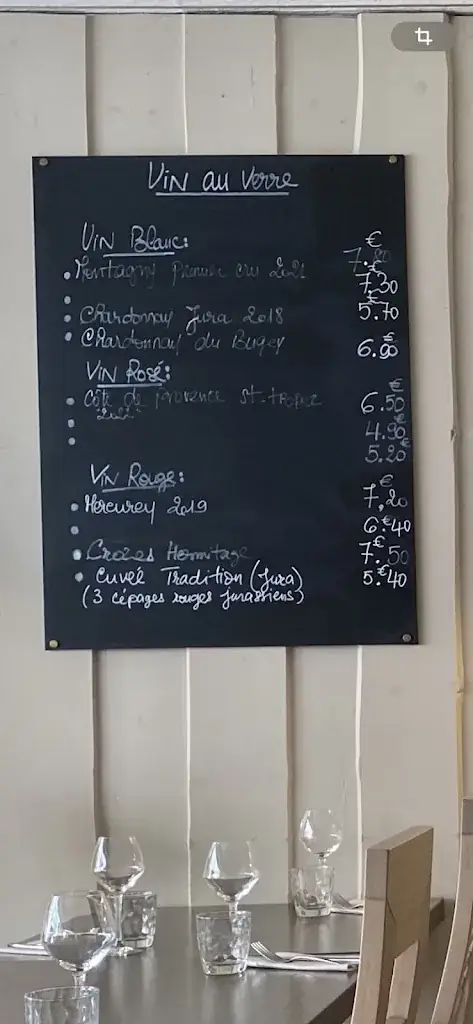 Vin au verre
Vin Blanc: €
• Montagny premier cru 2021 7.80
• 7,30 €
• Chardonnay Jura 2018 5.70 €
• Chardonnay du Bugey 6.90 €
Vin Rosé:
• Côte de provence St-tropez 6.50 €
2022
• 4.90 €
• 5.20 €
Vin Rouge:
• Mercurey 2019 7,20 €
• 6.40 €
• Crozes Hermitage 7.50 €
• Cuvée Tradition (Jura) 5.40 €
(3 cépages rouges jurassiens)